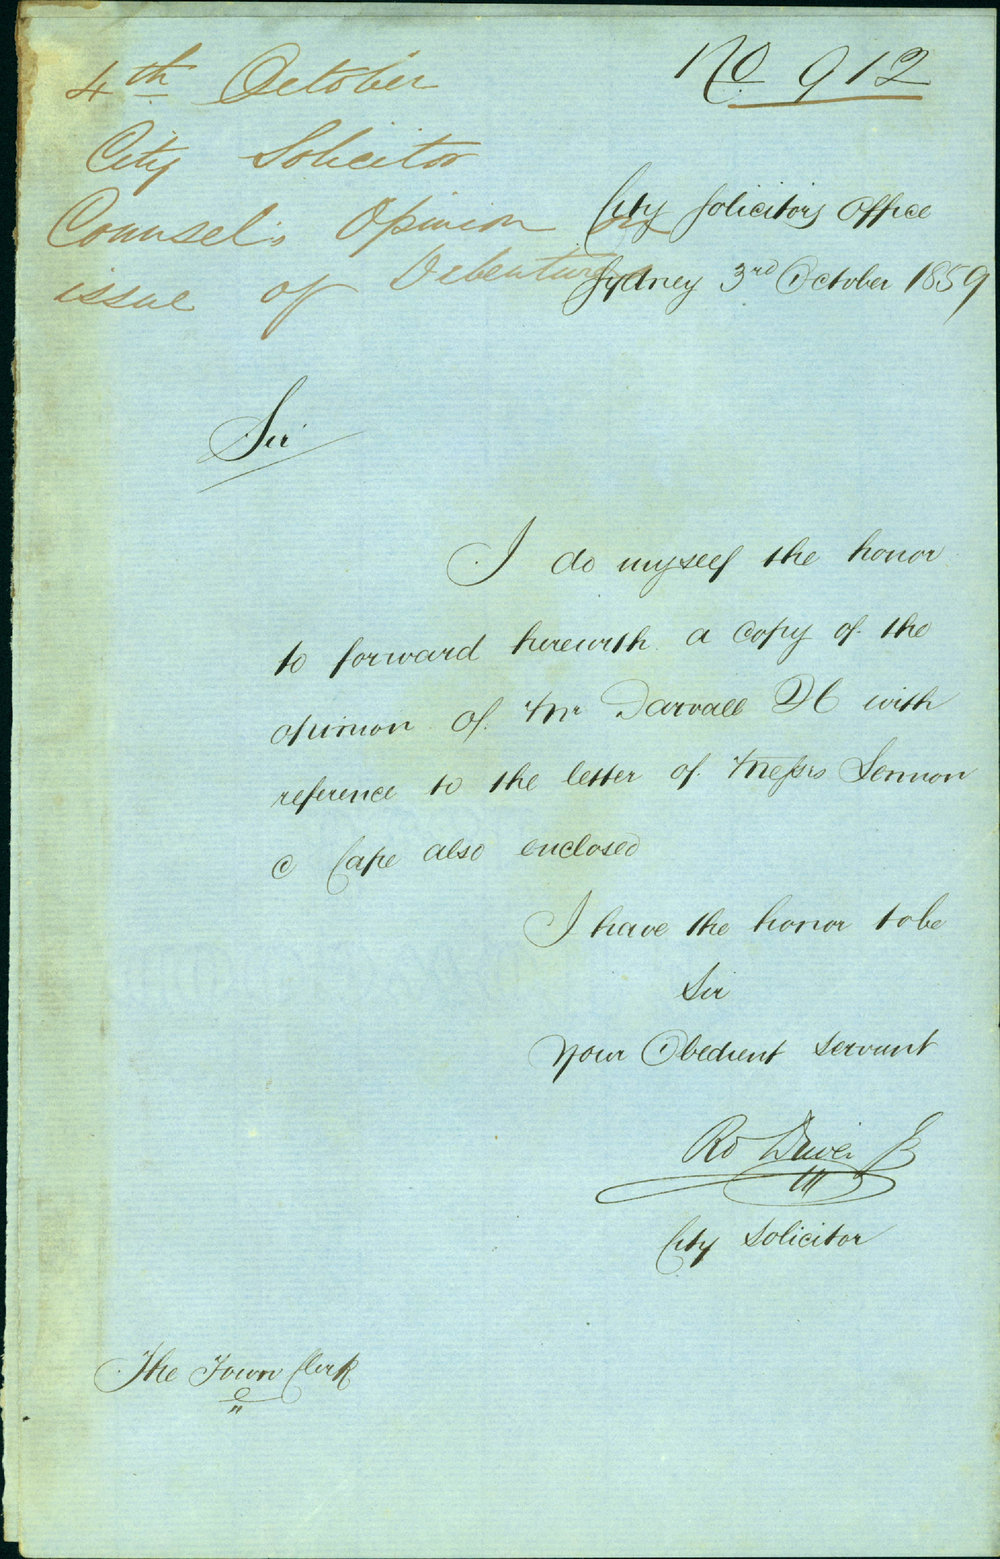 No 912
4th October
City Solicitor
Counsel's Opinion on
issue of Debentures
City Solicitors Office
Sydney 3rd October 1859
Sir
I do myself the honor
to forward herewith a copy of the
opinion of Mr Darvall QC with
reference to the letter of Messrs Lennon
& Cape also enclosed
I have the honor to be
Sir
Your Obedient Servant
Ro
City Solicitor
The Town Clerk